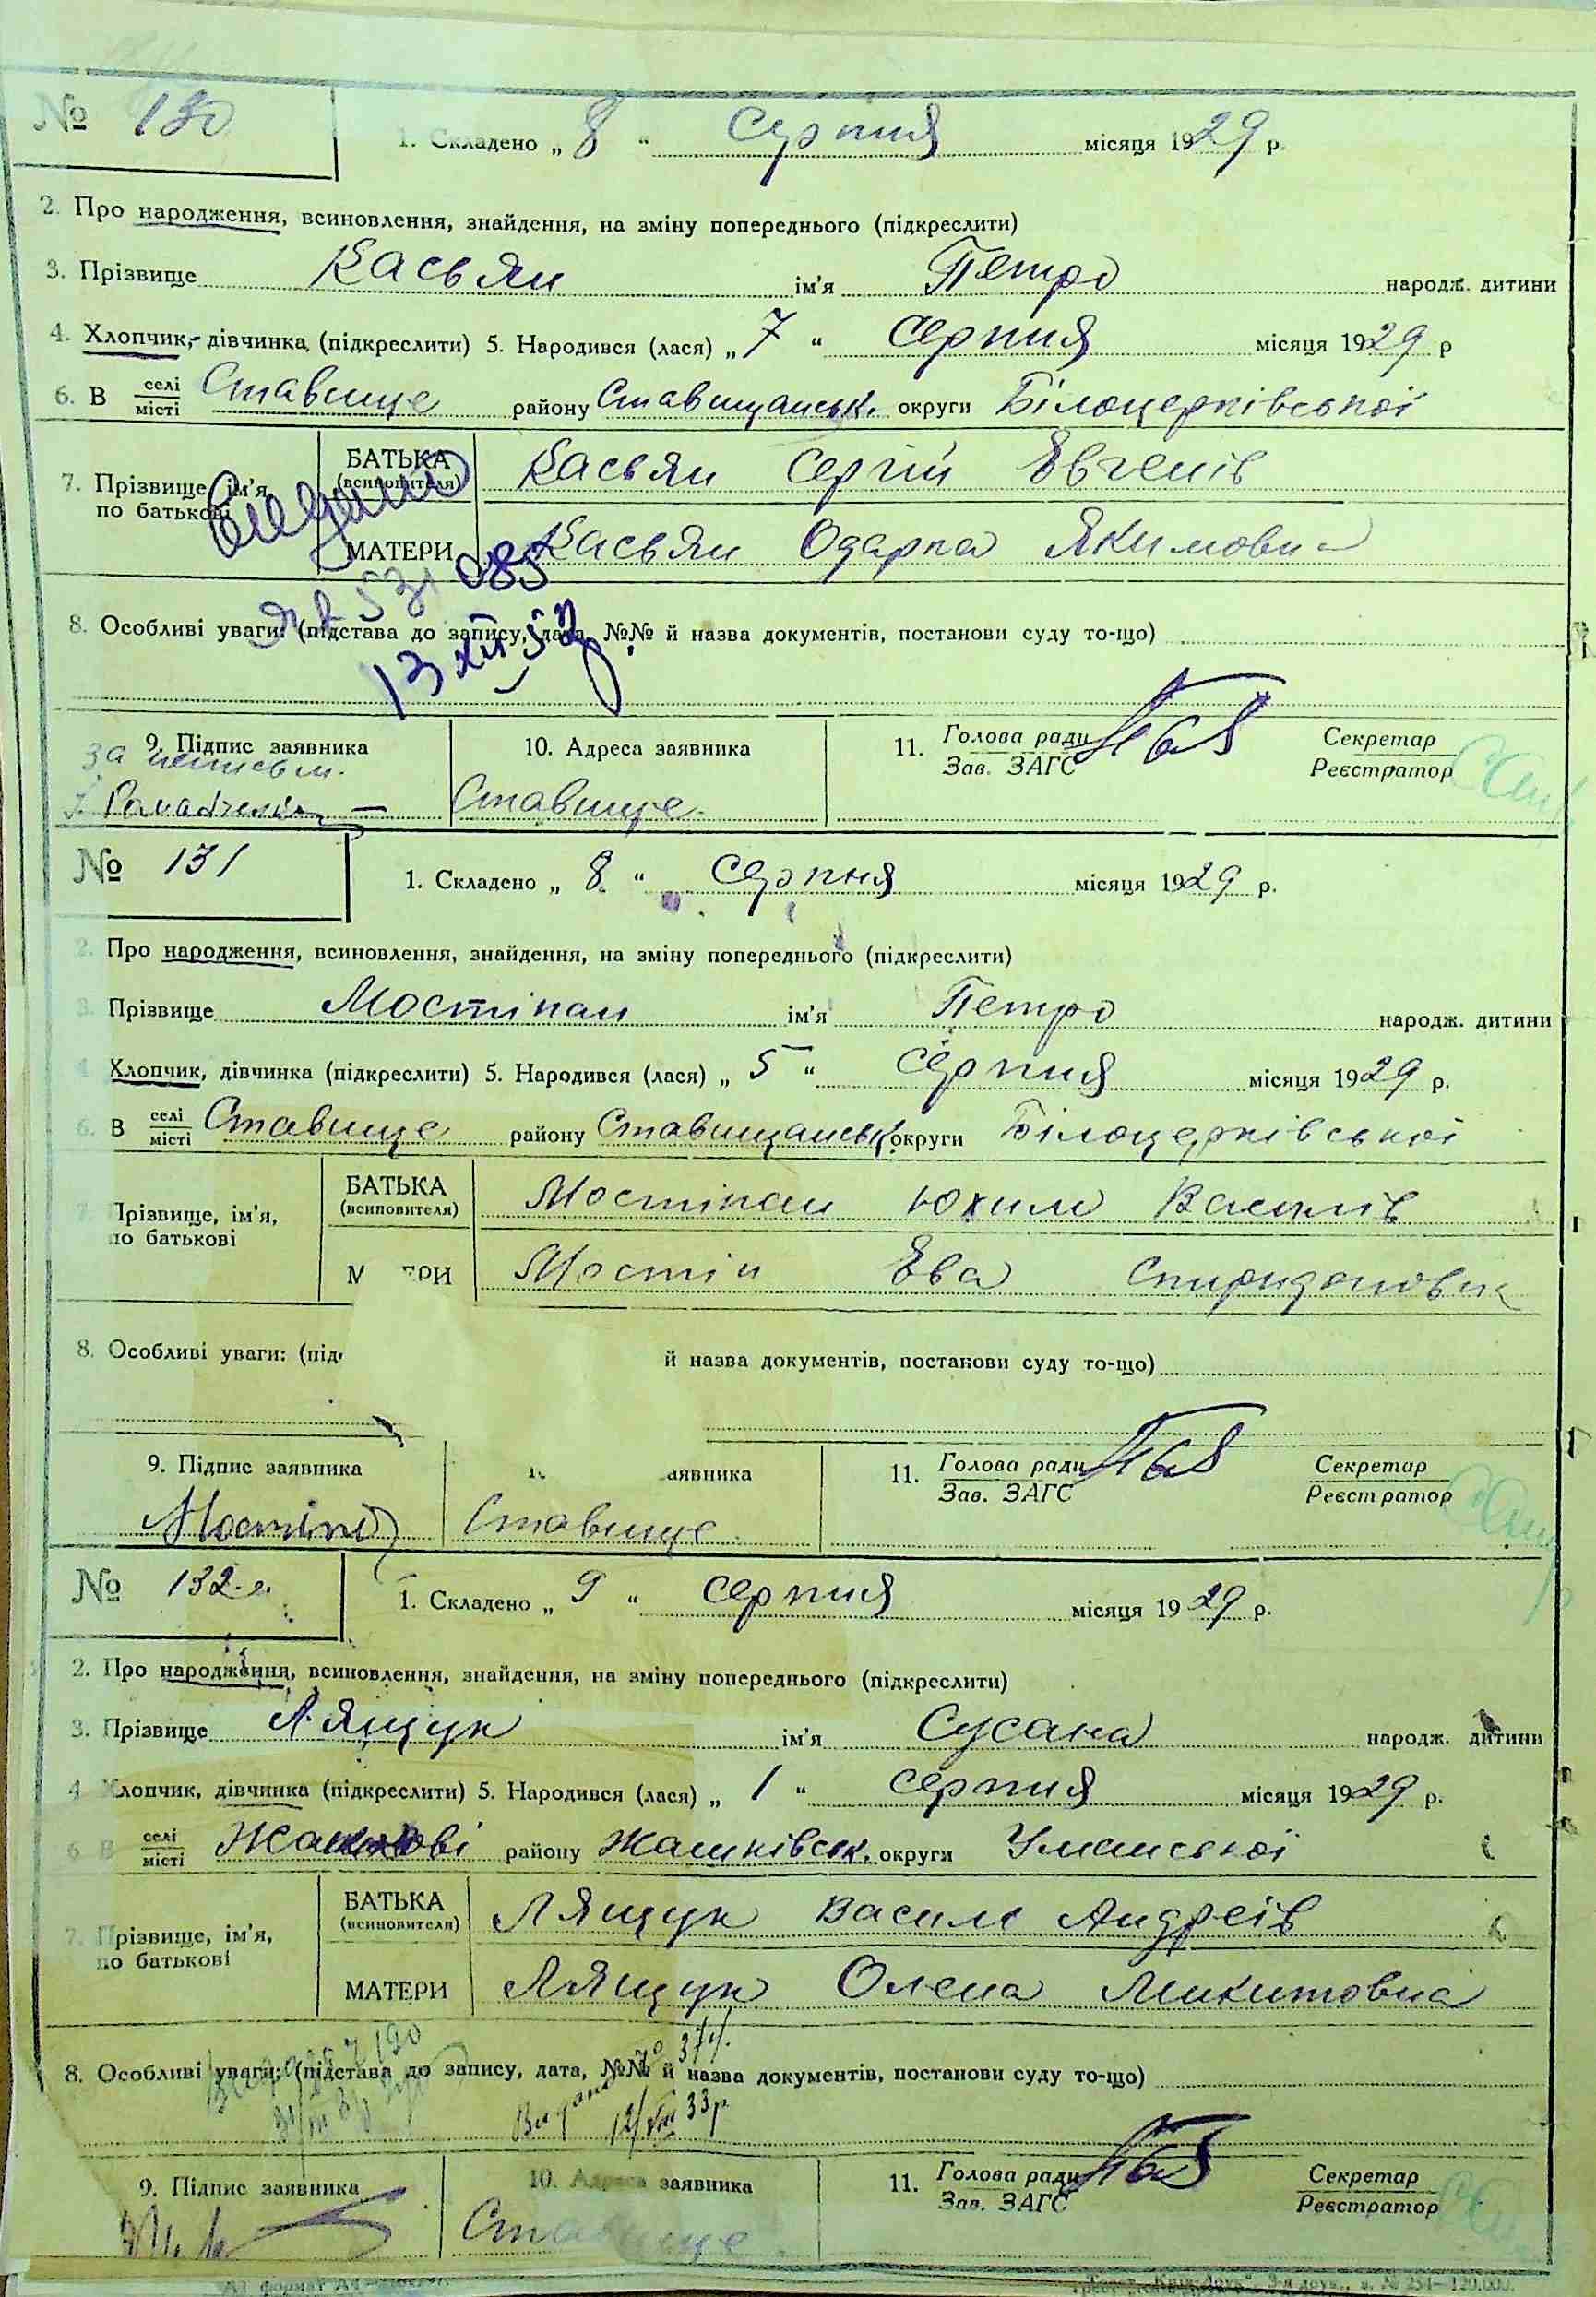 № 130
1. Складено „ 8 “ Серпня місяця 1929 р.
2. Про народження, всиновлення, знайдення, на зміну попереднього (підкреслити)
3. Прізвище Касьян ім'я Петро народж. дитини
4. Хлопчик, дівчинка (підкреслити) 5. Народився (лася) „ 7 “ Серпня місяця 1929 р
6. В селі місті Ставище району Ставищанськ. округи Білоцерківської
7. Прізвище, ім'я, по батькові
БАТЬКА (всиновителя) Касьян Сергій Евгенів
МАТЕРИ Касьян Одарка Якимовн
8. Особливі уваги: (підстава до запису, дата, №№ й назва документів, постанови суду то-що)
531085
13 XII 52
9. Підпис заявника 10. Адреса заявника 11. Голова ради Зав. ЗАГС Секретар Реєстратор
за неписьм.
Ставище.
№ 131
1. Складено „ 8 “ Серпня місяця 1929 р.
2. Про народження, всиновлення, знайдення, на зміну попереднього (підкреслити)
3. Прізвище Мостіпан ім'я Петро народж. дитини
4 Хлопчик, дівчинка (підкреслити) 5. Народився (лася) „ 5 “ Серпня місяця 1929 р.
6. В селі місті Ставище району Ставищанськ. округи Білоцерківської
7 Прізвище, ім'я, по батькові
БАТЬКА (всиновителя) Мостіпан Юхим Василів
М ЕРИ Мостіп Ева Спиридоновна
8. Особливі уваги: (під й назва документів, постанови суду то-що)
9. Підпис заявника аявника 11. Голова ради Зав. ЗАГС Секретар Реєстратор
Мостіп Ставище
№ 132
1. Складено „ 9 “ Серпня місяця 1929 р.
2. Про народження, всиновлення, знайдення, на зміну попереднього (підкреслити)
3. Прізвище Лящук ім'я Сусана народж. дитини
4 Хлопчик, дівчинка (підкреслити) 5. Народився (лася) „ 1 “ Серпня місяця 1929 р.
6 В селі місті Жашкові району Жашківськ. округи Уманської
7. Прізвище, ім'я, по батькові
БАТЬКА (всиновителя) Лящук Василь Андреів
МАТЕРИ Лящук Олена Микитовна
8. Особливі уваги: (підстава до запису, дата, №№ й назва документів, постанови суду то-що)
Видано
12/VIII 33 р.
9. Підпис заявника 10. Адреса заявника 11. Голова ради Зав. ЗАГС Секретар Реєстратор
Ставище